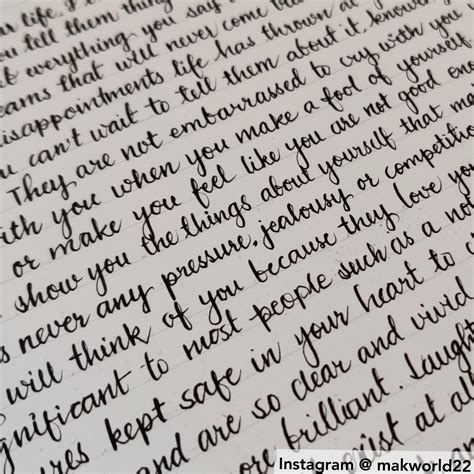 life,
u tell them thing
everything you say
eams that will never come tr
disappointments life has thrown at
u can't wait to tell them about it, knowin
They are not embarrassed to cry with you
ith you when you make a fool of yourself
or make you feel like you are not good eno
show you the things about yourself that m
s never any pressure, jealousy or competitio
will think of you because they love you
gnificant to most people such as a not
res kept safe in your heart to
and are so clear and vivid
ore brilliant. Laugh
exist at al
Instagram @ makworld22